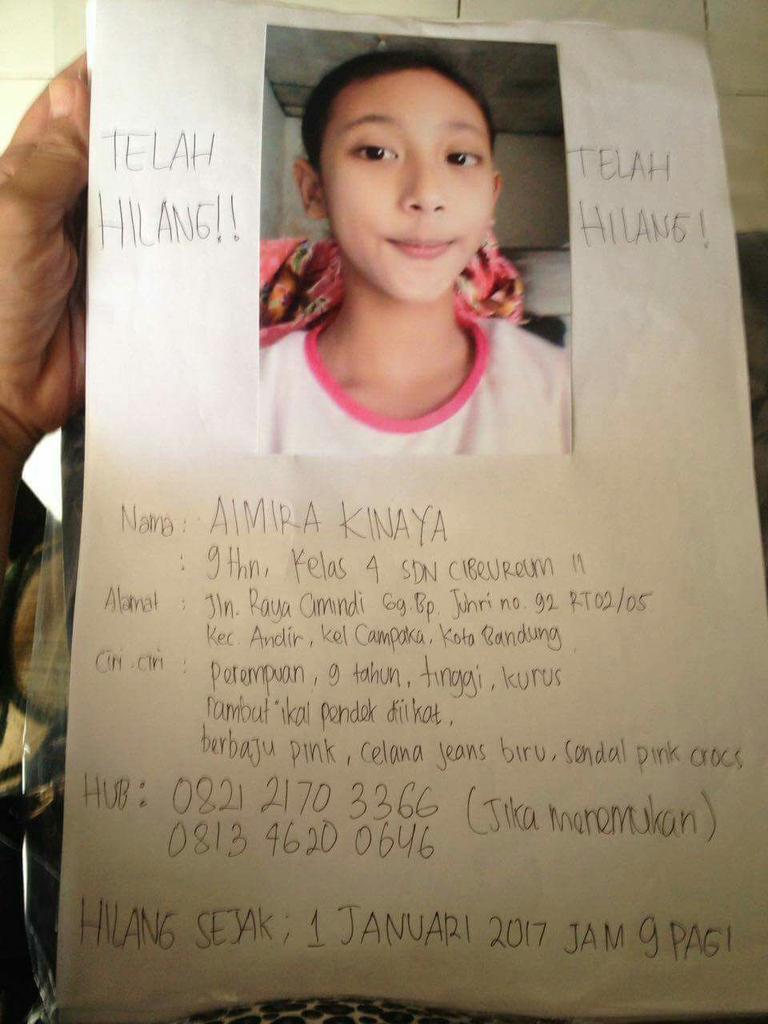 TELAH HILANG!!
TELAH HILANG!
Nama : AIMIRA KINAYA
: 9 thn, Kelas 4 SDN CIBEUREUM 11
Alamat : Jln. Raya Cimindi Gg. Bp. Juhri no. 92 RT 02/05
Kec. Andir, Kel Campaka, Kota Bandung
Ciri-ciri : perempuan, 9 tahun, tinggi, kurus
rambut ikal pendek diikat,
berbaju pink, celana jeans biru, sendal pink crocs
HUB : 0821 2170 3366 (Jika menemukan)
0813 4620 0646
HILANG SEJAK ; 1 JANUARI 2017 JAM 9 PAGI